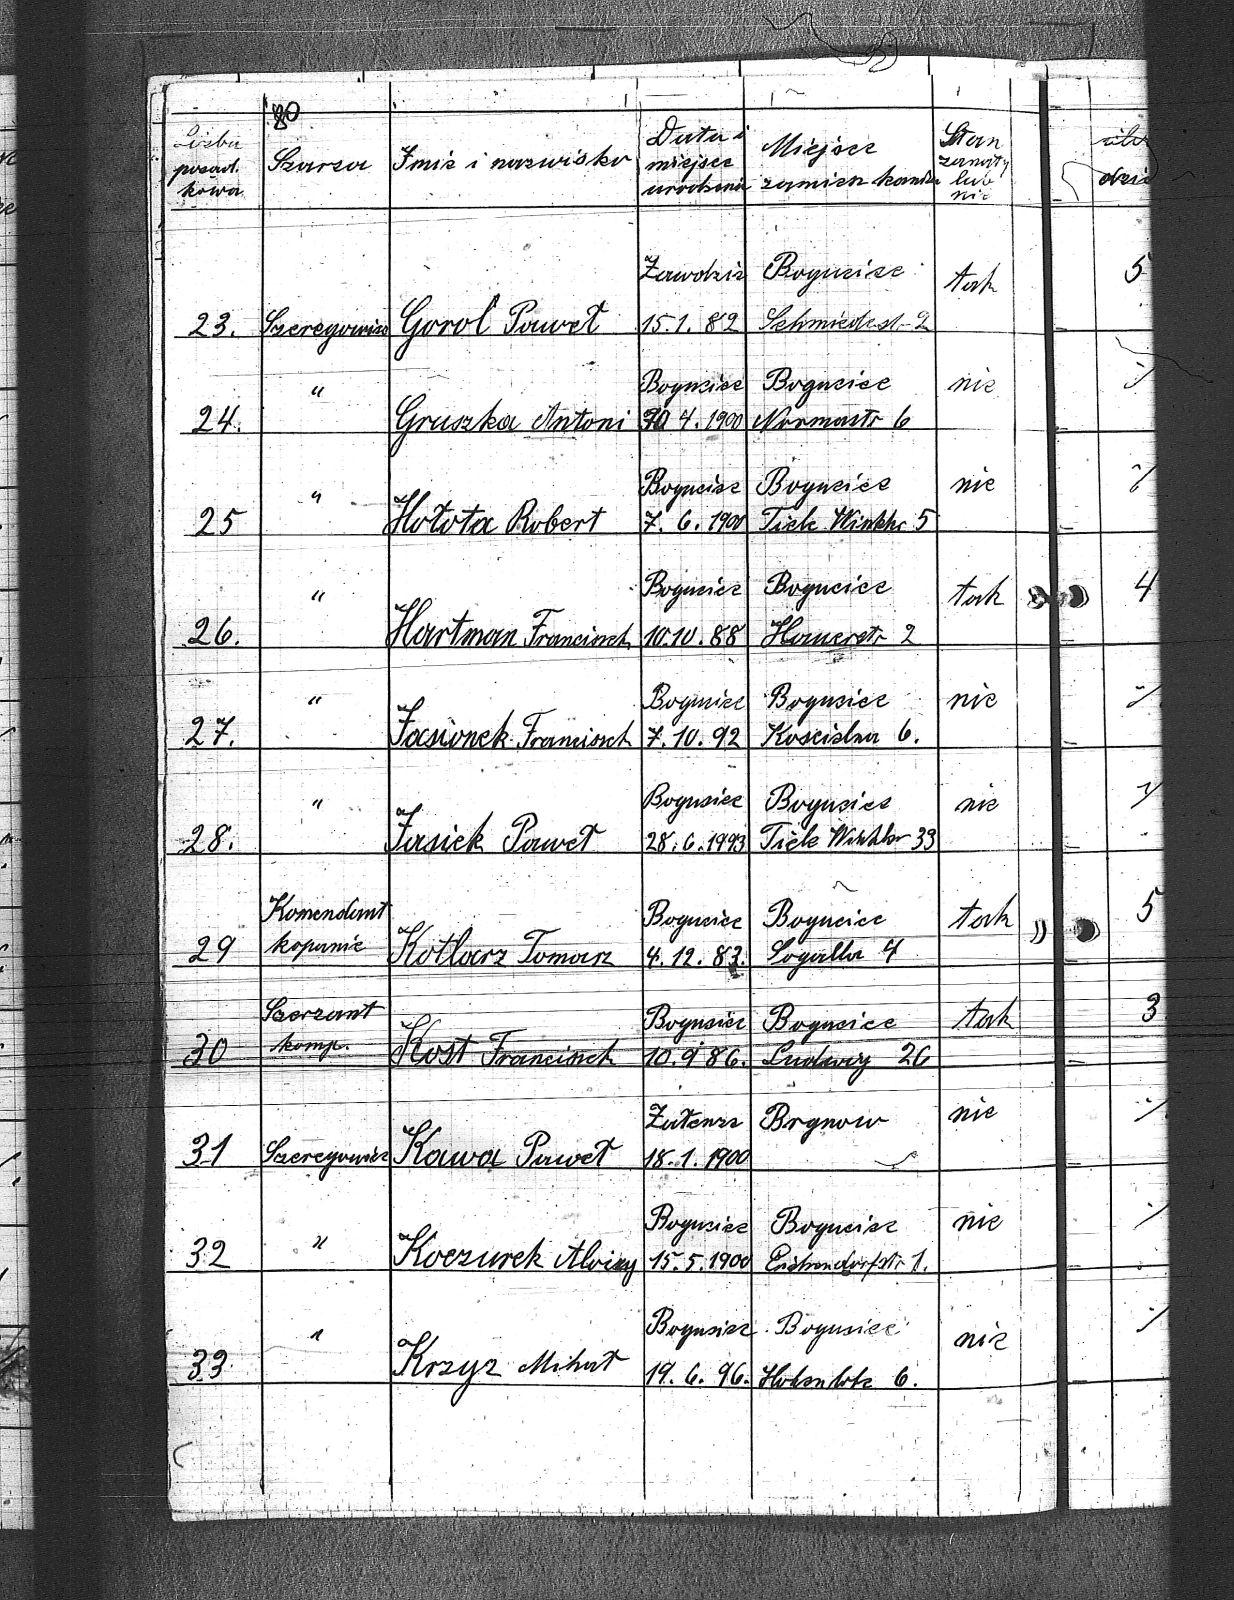 80
Liczba porząd. kowa Szarza Imie i nazwisko Data i miejsce urodzenia Miejsce zamieszkania Stan żonaty lub nie
Zawodzie Bogucice tak 5
23. Szeregowiec Gorol Paweł 15.1.82 Schmiedestr 2
" Bogucice Bogucice nie %
24. Gruszka Antoni 30 4.1900 Normastr 6
" Bogucice Bogucice nie %
25 Hołota Robert 7.6.1900 Tiele Winkler 5
" Bogucice Bogucice tak 4
26. Hartman Franciszek 10.10.88 Hauerstr 2
" Bogucice Bogucice nie %
27. Jasionek Franciszek 7.10.92 Kościelna 6.
" Bogucice Bogucice nie %
28. Jasiek Paweł 28.6.1993 Tiele Winkler 33
Komendant Bogucice Bogucice tak 5
29 kopanie Kotlarz Tomasz 4.12.83. Logalla 4
Szerzant Bogucice Bogucice tak 3
30 komp. Kost Franciszek 10.9 86. Ludwig 26
Załenze Brynow nie %
31 Szeregowiec Kawa Paweł 18.1.1900
" Bogucice Bogucice nie %
32 Koczurek Alojzy 15.5.1900 Eichendorfstr 1.
" Bogucice Bogucice nie %
33 Krzyz Mihał 19.6.96. 6.